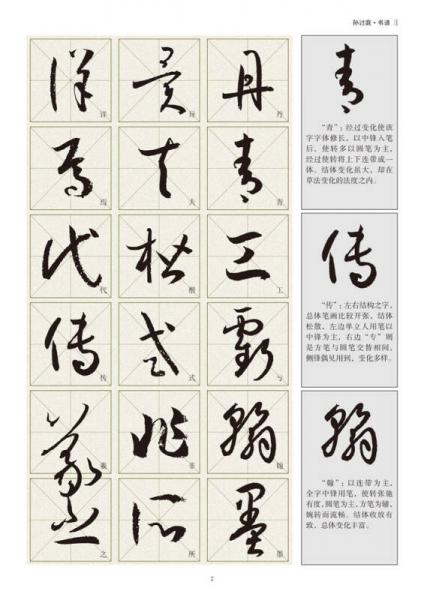 孙过庭·书谱
丹青工虧翰墨
丹
青
工
亏
翰
墨
異夫楷式非所
异
夫
楷
式
非
所
詳焉代傳羲之
详
焉
代
传
羲
之
青
“青”：经过变化使该
字字体修长，以中锋入笔
后，使转多以圆笔为主，
经过使转将上下连带成一
体。结体变化虽大，却在
草法变化的法度之内。
傳
“传”：左右结构之字，
总体笔画比较开张，结体
松散，左边单立人用笔以
中锋为主，右边“专”则
是方笔与圆笔交替相间，
侧锋偶见用到，变化多样。
翰
“翰”：以连带为主，
全字中锋用笔，使转张弛
有度，圆笔为主，方笔为辅，
婉转而流畅。结体收放有
致，总体变化丰富。
2